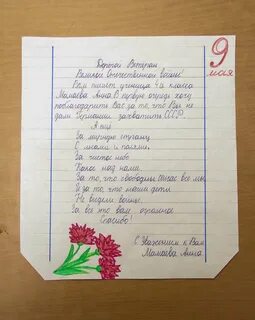 9
мая
Дорогой Ветеран
Великой Отечественной войны!
Вам пишет ученица 4а класса
Мамаева Анна. В первую очередь хочу
поблагодарить Вас за то, что Вы не
дали Германии захватить СССР.
А еще
За мирную страну,
С лесами и полями.
За чистое небо
Голос над нами.
За то, что свободны сейчас все мы,
И за то, что наши дети
Не видели войны.
За всё это вам огромное
Спасибо!
С Уважением к Вам
Мамаева Анна